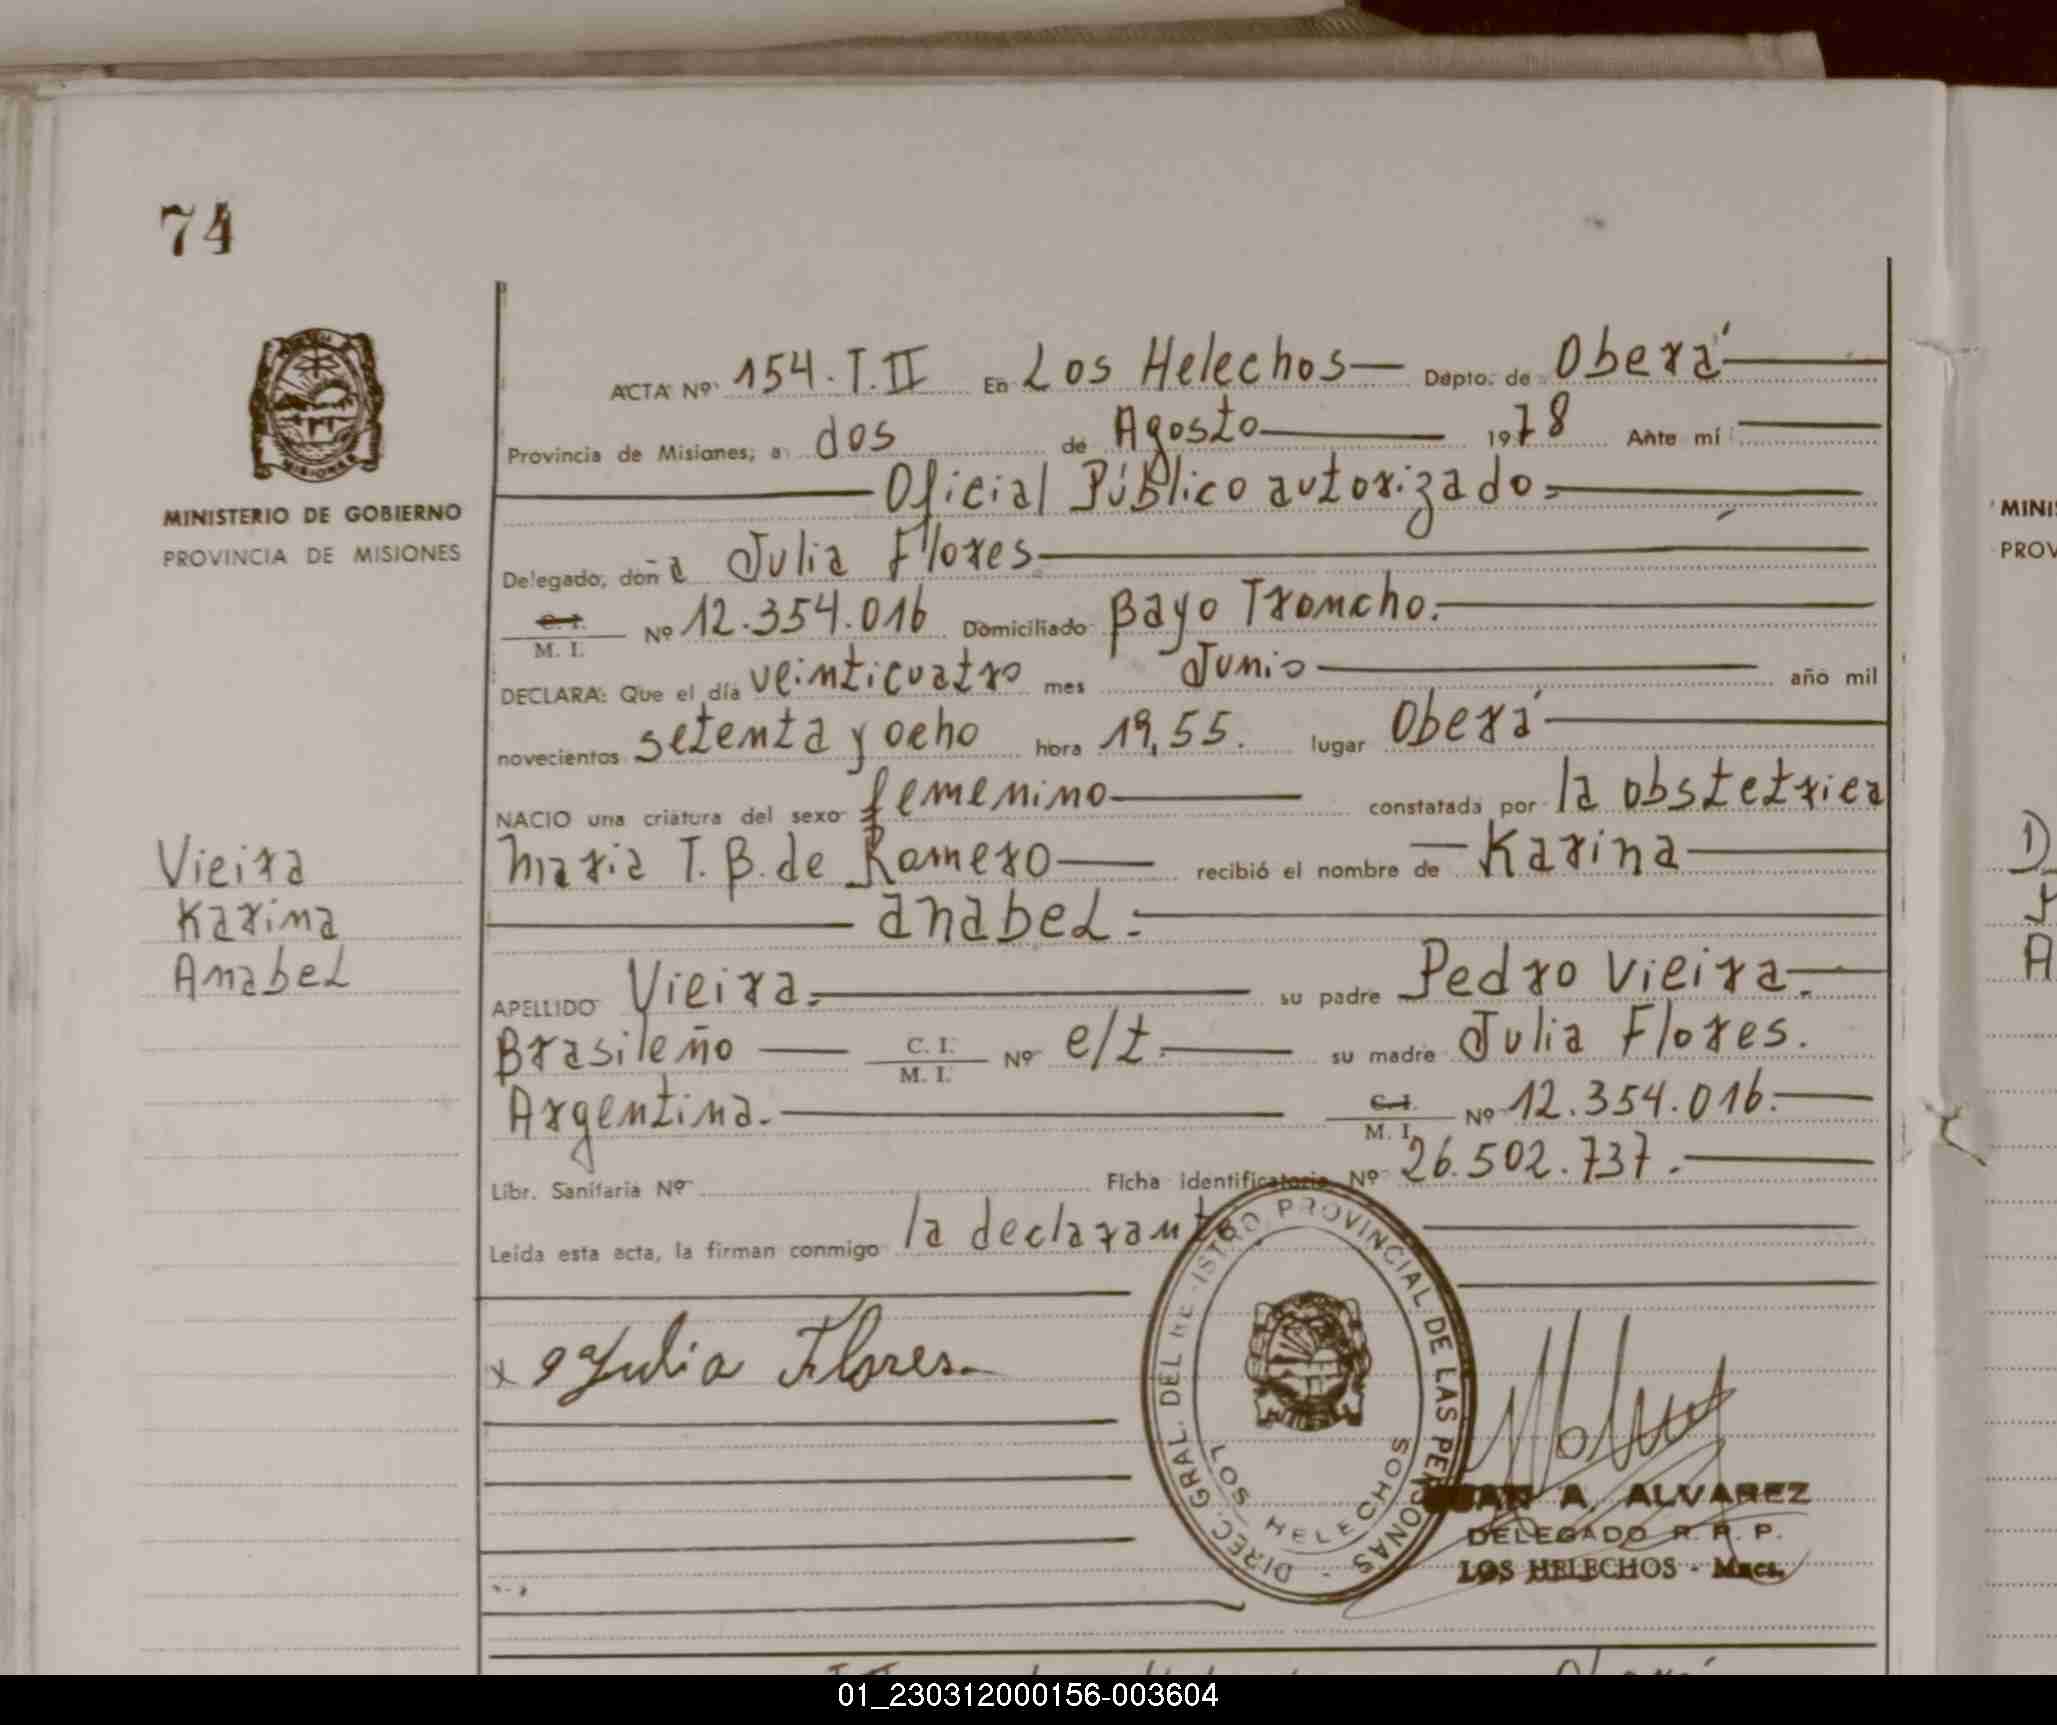 74
MINISTERIO DE GOBIERNO
PROVINCIA DE MISIONES
ACTA Nº 154.T.II En Los Helechos Dapto. de Oberá
Provincia de Misiones, a dos de Agosto 1978 Ante mí
Oficial Público autorizado
Delegado, doña Julia Flores
C. I.
M. I. Nº 12.354.016 Domiciliado Bayo Troncho.
DECLARA: Que el día veinticuatro mes Junio año mil
novecientos setenta y ocho hora 19,55. lugar Oberá
NACIO una criatura del sexo femenino constatada por la obstetrica
Maria T. B. de Romero recibió el nombre de Karina
anabel
Vieira
Karina
Anabel
APELLIDO Vieira. su padre Pedro Vieira.
Brasileño C. I.
M. I. Nº e/t. su madre Julia Flores.
Argentina. C. I.
M. I. Nº 12.354.016.
Libr. Sanitaria Nº Ficha identificatoria Nº 26.502.737.
Leída esta acta, la firman conmigo la declarante
x Julia Flores
DIREC. GRAL. DEL REGISTRO PROVINCIAL DE LAS PERSONAS
LOS HELECHOS
A. ALVAREZ
DELEGADO R. P. P.
LOS HELECHOS - Mnes.
MINIS
PROV
01_230312000156-003604